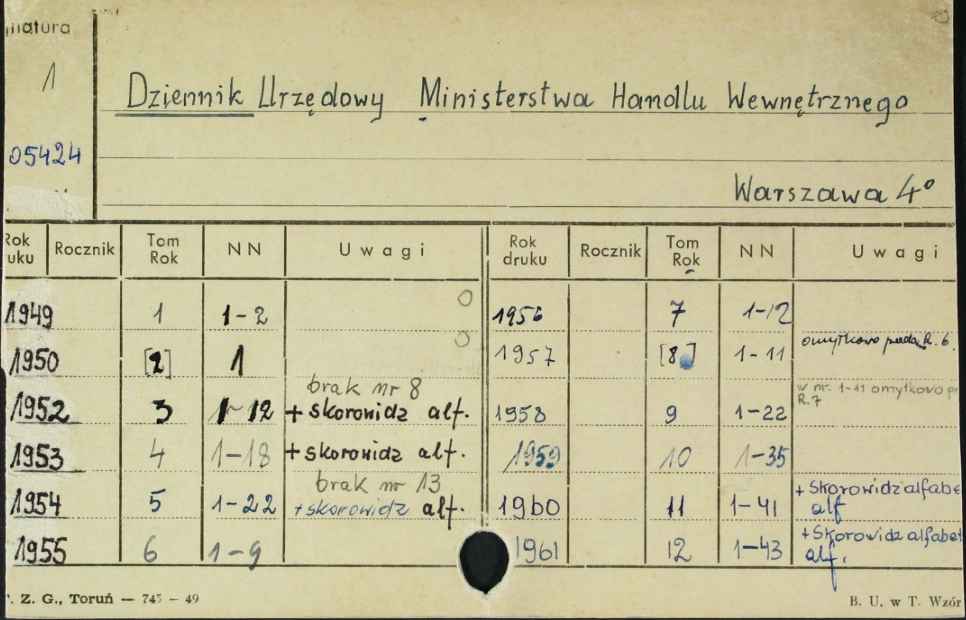 natura
1
Dziennik Urzędowy Ministerstwa Handlu Wewnętrznego
05424
Warszawa 4°
Rok uku Rocznik Tom Rok NN Uwagi Rok druku Rocznik Tom Rok NN Uwagi
1949 1 1-2 1956 7 1-12
1950 [2] 1 1957 [8] 1-11 omyłkowo R. 6.
1952 3 1-12 brak nr 8 + skorowidz alf. 1958 9 1-22 w nr. 1-11 omyłkowo R.7
1953 4 1-18 + skorowidz alf. 1959 10 1-35
1954 5 1-22 brak nr 13 + skorowidz alf. 1960 11 1-41 + Skorowidz alfabe alf
1955 6 1-9 1961 12 1-43 + Skorowidz alfabet alf.
. Z. G., Toruń — 745 — 49 B. U. w T. Wzór